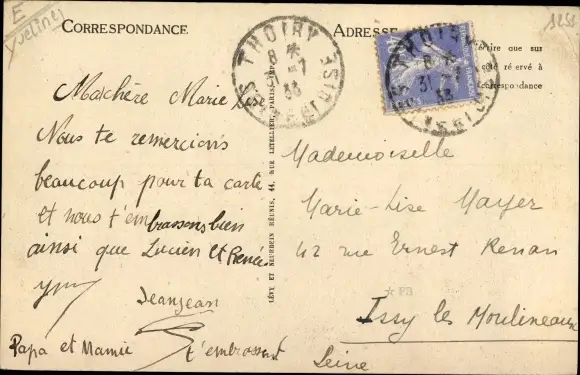 E
Yvelines
CORRESPONDANCE
ADRESSE
THOIRY
8 *
31-7
33
SEINE ET OISE
THOIRY
8 *
31-7
33
crire que sur
côté réservé à
correspondance
Ma chère Marie Lise
Nous te remercions
beaucoup pour ta carte
et nous t'embrassons bien
ainsi que Lucien et Renée
Jeanjean
Papa et Mamie t'embrassent
LÉVY ET NEURDEIN RÉUNIS, 44, RUE LETELLIER, PARIS
Mademoiselle
Marie-Lise Mayer
42 rue Ernest Renan
Issy les Moulineaux
Seine